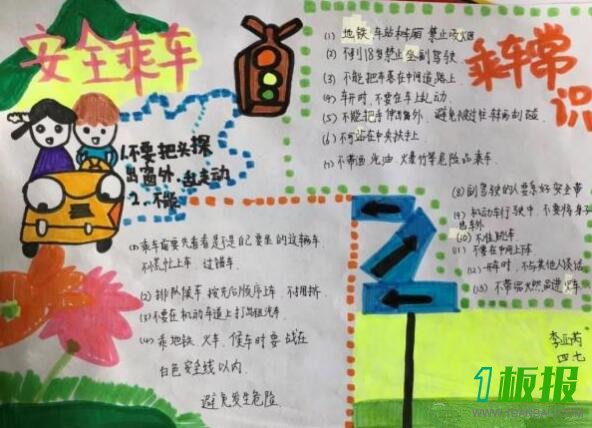 安全乘车
乘车常识
1.不要把头探
出窗外,乱走动
2、不能
(1) 地铁,车站和车厢 禁止吸烟
(2) 不到18岁禁止坐副驾驶
(3) 不能把车停在中间道路上
(4) 车开时,不要在车上乱动.
(5) 不能把手伸出窗外,避免被过忙车辆刮碰
(6) 不可站在中央扶手上
(7) 不带酒,汽油,火暴竹等危险品乘车.
(8) 副驾驶的人要系好安全带
(9) 机动车行驶中,不要将身子
出车外
(10) 不准跳车
(11) 不要在中间上下车
(12) 开车时,不与其他人谈话
(13) 不带易火然品进火车
(1) 乘车前要先看看是不是自己要坐的这辆车.
不慌忙上车,过错车.
(2) 排队候车,按先后顺序上车,不拥挤.
(3) 不要在机动车道上打出租汽车.
(4) 乘地铁,火车,候车时要站在
白色安全线以内.
避免发生危险.
李亚芮
四七
1板报
WWW.1BANBAO.COM